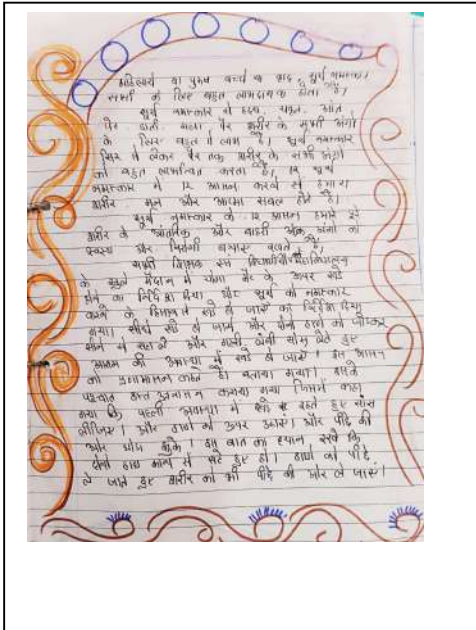 महिलाये वा पुरुष बच्चे व वृद्ध सूर्य नमस्कार
सभी के लिए बहुत लाभदायक होता है।
सूर्य नमस्कार से हृदय यकृत आंत
पेट छाती गला पैर शरीर के सभी अंगो
के लिए बहुत से लाभ है। सूर्य नमस्कार
सिर से लेकर पैर तक शरीर के सभी अंगो
को बहुत लाभान्वित करता है, 12 सूर्य
नमस्कार में 12 आसन करने से हमारा
शरीर मन और आत्मा सबल होते है।
सूर्य नमस्कार के 12 आसन हमारे पूरे
शरीर के आंतरिक और बाहरी अंगो को
स्वस्थ और निरोगी बनाए रखते है।
सभी शिक्षक एवं विद्यार्थी महाविद्यालय
के खुले मैदान में योगा मैट के ऊपर खड़े
होने का निर्देश दिया और सूर्य को नमस्कार
करने के हिसाब से खड़े हो जाने का निर्देश दिया
गया। सीधे खड़े हो जाये और दोनो हाथो को जोड़कर
सीने से सटा ले और गहरी लंबी साँस लेते हुए
आराम की अवस्था में खड़े हो जाए। इस आसन
को प्रणामासन कहते है। बताया गया। इसके
पश्चात हस्त उत्तानासन कराया गया जिसमें कहा
गया कि पहली अवस्था में खड़े रहते हुए सांस
लीजिए। और हाथो को ऊपर उठाए। और पीछे की
ओर थोड़ा झुके। इस बात का ध्यान रखे कि
दोनो हाथ कानो से सटे हुए हो। हाथो को पीछे
ले जाते हुए शरीर को भी पीछे की ओर ले जाए।